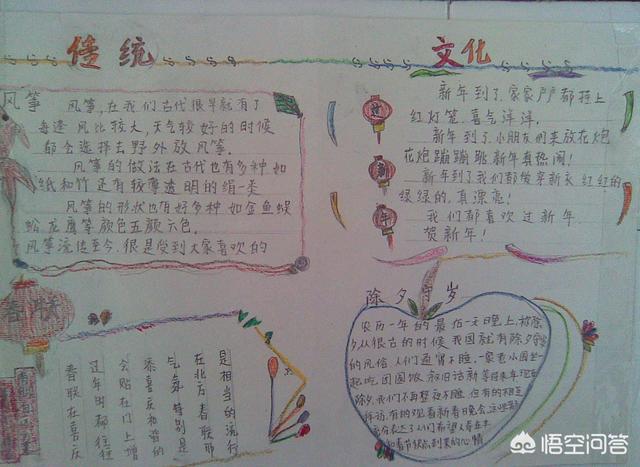 传统
文化
风筝
风筝,在我们古代很早就有了
每逢风比较大,天气较好的时候
都会选择去野外放风筝.
风筝的做法在古代也有多种如
纸和竹还有较薄透明的绢一类
风筝的形状也有好多种如金鱼蜈
蚣龙鹰等颜色五颜六色.
风筝流传至今.很是受到大家喜欢的
新年到了,家家户户都挂上
红灯笼,喜气洋洋.
新年到了,小朋友们来放花炮
花炮蹦蹦跳新年真热闹!
新年到了我们都爱穿新衣,红红的
绿绿的,真漂亮!
我们都喜欢过新年
贺新年!
新
年
春联
春联在喜庆
过年时都往往
会贴在门上增
添喜庆和谐的
气氛特别是
在北方春联那
是相当的流行
除夕守岁
农历一年的最后一天晚上,被称除
夕从很古的时候我国就有除夕守岁
的风俗人们通宵不睡.一家老小围坐一
起吃团圆饭叙旧话新等待来年
除夕,我们不再整夜不睡但有的相互
拜访,有的观看新春晚会
充分表达了人们希望
和春节快点到来的心情
悟空问答